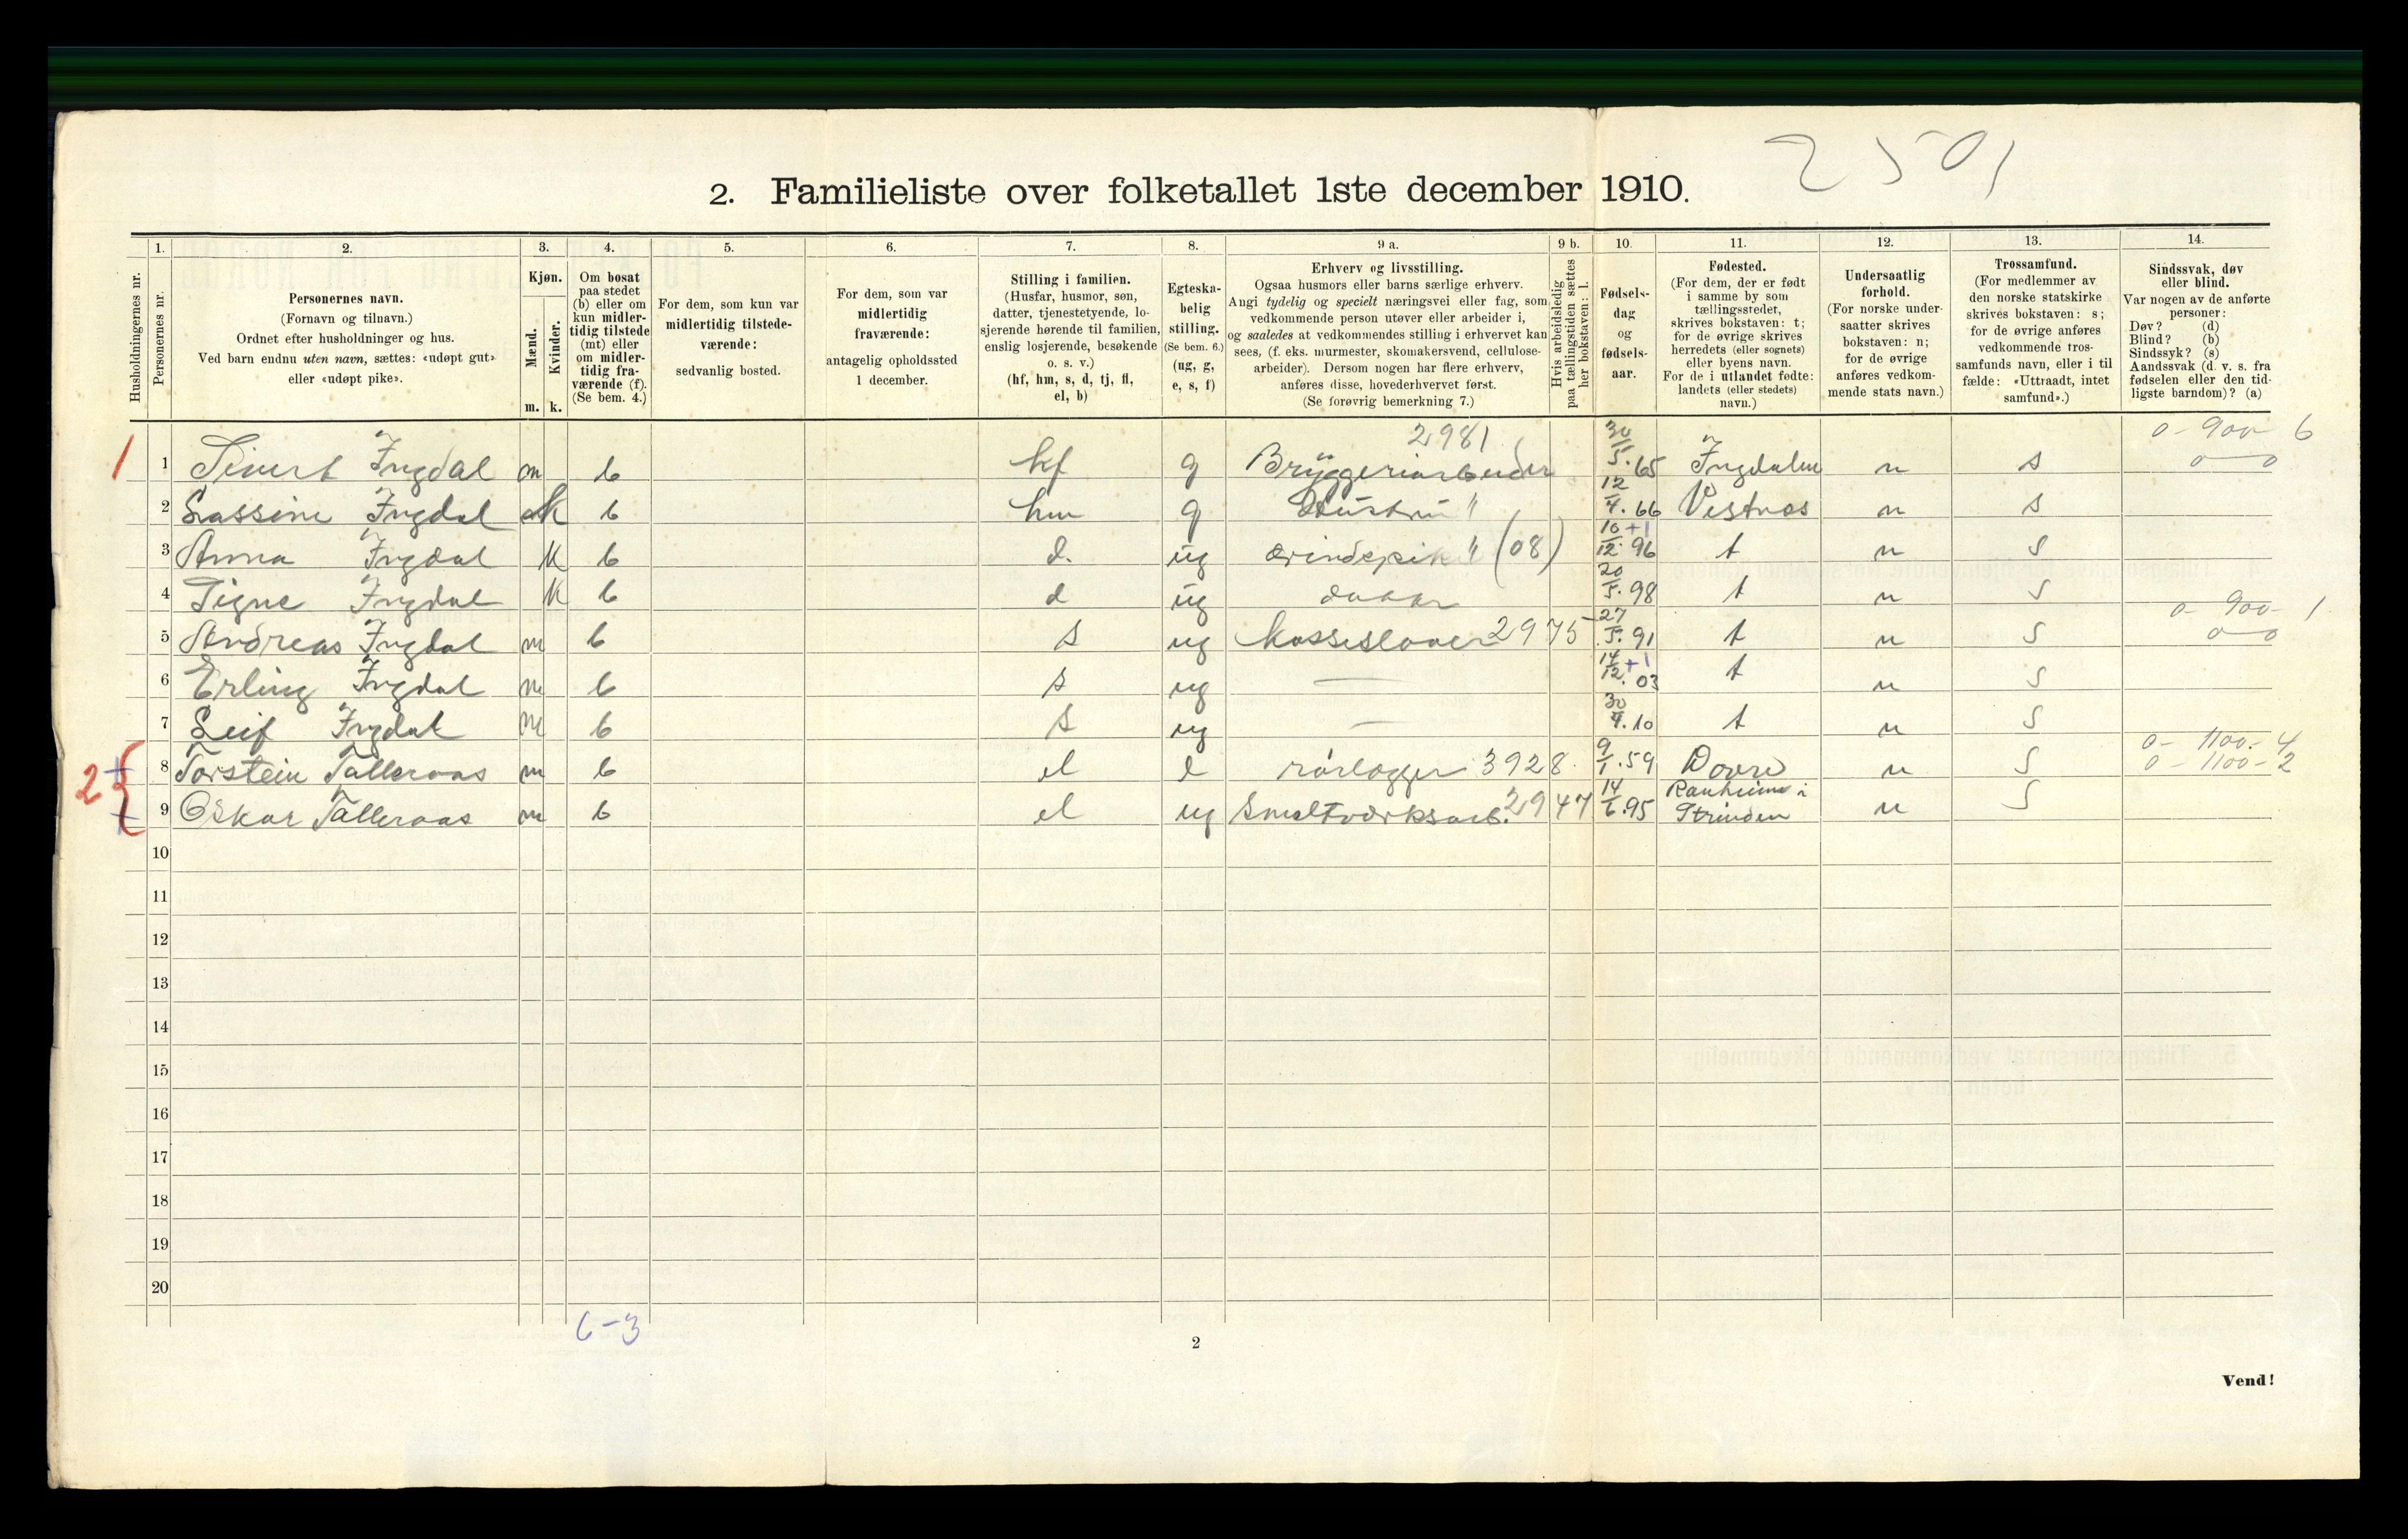 2501
2. Familieliste over folketallet 1ste december 1910.
Husholdningernes nr.
1.
Personernes nr.
2.
Personernes navn.
(Fornavn og tilnavn.)
Ordnet efter husholdninger og hus.
Ved barn endnu uten navn, sættes: «udøpt gut»
eller «udøpt pike».
3.
Kjøn.
Mænd.
Kvinder.
m. k.
4.
Om bosat
paa stedet
(b) eller om
kun midler-
tidig tilstede
(mt) eller
om midler-
tidig fra-
værende (f).
(Se bem. 4.)
5.
For dem, som kun var
midlertidig tilstede-
værende:
sedvanlig bosted.
6.
For dem, som var
midlertidig
fraværende:
antagelig opholdssted
1 december.
7.
Stilling i familien.
(Husfar, husmor, søn,
datter, tjenestetyende, lo-
sjerende hørende til familien,
enslig losjerende, besøkende
o. s. v.)
(hf, hm, s, d, tj, fl,
el, b)
8.
Egteska-
belig
stilling.
(Se bem. 6.)
(ug, g,
e, s, f)
9 a.
Erhverv og livsstilling.
Ogsaa husmors eller barns særlige erhverv.
Angi tydelig og specielt næringsvei eller fag, som
vedkommende person utøver eller arbeider i,
og saaledes at vedkommendes stilling i erhvervet kan
sees, (f. eks. murmester, skomakersvend, cellulose-
arbeider). Dersom nogen har flere erhverv,
anføres disse, hovederhvervet først.
(Se forøvrig bemerkning 7.)
9 b.
Hvis arbeidsledig
paa tællingstiden sættes
her bokstaven: l.
10.
Fødsels-
dag
og
fødsels-
aar.
11.
Fødested.
(For dem, der er født
i samme by som
tællingsstedet,
skrives bokstaven: t;
for de øvrige skrives
herredets (eller sognets)
eller byens navn.
For de i utlandet fødte:
landets (eller stedets)
navn.)
12.
Undersaatlig
forhold.
(For norske under-
saatter skrives
bokstaven: n;
for de øvrige
anføres vedkom-
mende stats navn.)
13.
Trossamfund.
(For medlemmer av
den norske statskirke
skrives bokstaven: s;
for de øvrige anføres
vedkommende tros-
samfunds navn, eller i til
fælde: «Uttraadt, intet
samfund».)
14.
Sindssvak, døv
eller blind.
Var nogen av de anførte
personer:
Døv? (d)
Blind? (b)
Sindssyk? (s)
Aandssvak (d. v. s. fra
fødselen eller den tid-
ligste barndom)? (a)
2981 0-900-6
1 1 Sivert Ingdal m b hf g Bryggeriarbeider 30/5.65 Ingdalen n s 0-0
2 Lassine Ingdal k b hm g Hustru " 12/4.66 Vestnes n s
3 Anna Ingdal k b d. ug ærindepike " (08) 10/12.96 +1 t n s
4 Signe Ingdal k b d ug datter 20/5.98 t n s
0-900-1
5 Andreas Ingdal m b s ug 2975 27/5.91 t n s 0-0
6 Erling Ingdal m b s ug — 14/12.03 +1 t n s
7 Leif Ingdal m b s ug — 30/4.10 t n s
0-1100-4
2 8 Torstein Talleraas m b el e rørlægger 3928 9/1.59 Dovre n s 0-1100-2
9 Oskar Talleraas m b el ug Smeltværksarb. 2947 14/6.95 Ranheim i Strinden n s
10
11
12
13
14
15
16
17
18
19
20
6-3
2
Vend!